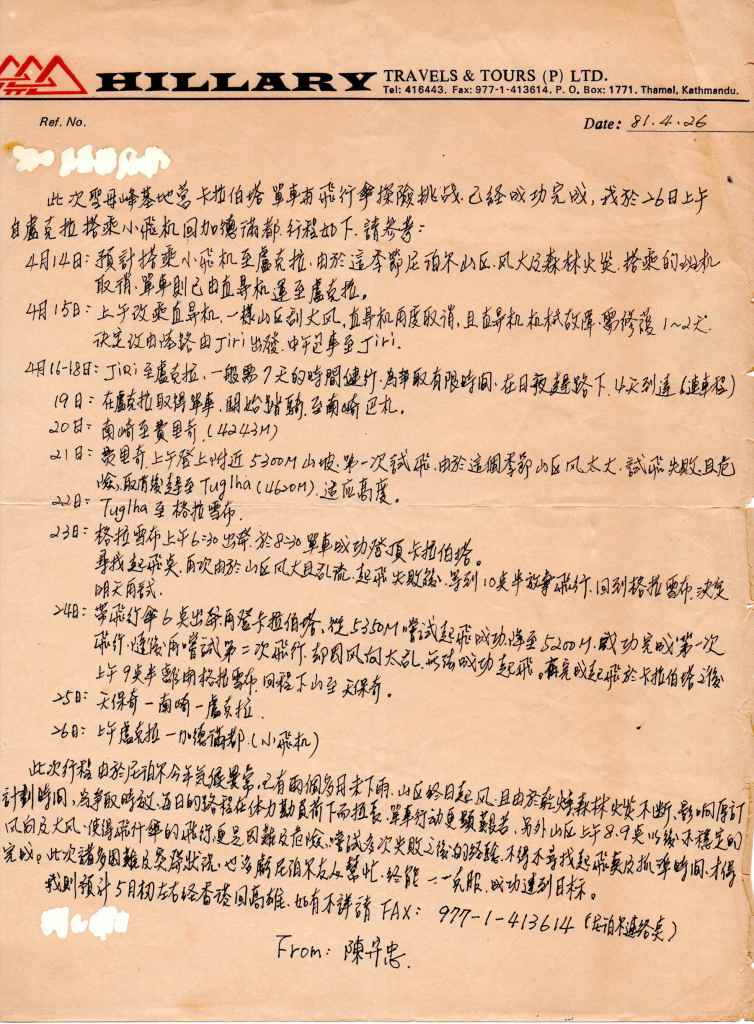 HILLARY TRAVELS & TOURS (P) LTD.
Tel: 416443. Fax: 977-1-413614. P. O. Box: 1771. Thamel, Kathmandu.
Ref. No.
Date: 81.4.26
此次聖母峰基地營卡拉伯塔單車与飛行傘探險挑战已经成功完成，我於26日上午
自盧克拉搭乘小飛机回加德滿都.行程如下.請參考：
4月14日：預計搭乘小飛机至盧克拉.由於這季節尼泊尔山区.风大及森林火災.搭乘的班机
取消.單車則已由直昇机運至盧克拉。
4月15日：上午改乘直昇机.一樣山区刮大风，直昇机再度取消，且直昇机机械故障.需修復1~2天.
決定改由公路由Jiri出發.中午包車至Jiri.
4月16-18日：JiRi至盧克拉.一般需7天的時間健行.為爭取有限時間.在日夜趕路下.4天到達(連車程)
19日：在盧克拉取得單車.開始踏騎.至南崎巴札.
20日：南崎至費里奇.(4243M)
21日：費里奇.上午登上附近5300M山坡.第一次試飛.由於這個季節山区风太大.試飛失敗.且危
險.取消後趕至Tuglha(4620M).适应高度。
22日：Tuglha至格拉雪布.
23日：格拉雪布上午6:30出發.於8:30單車成功登頂卡拉伯塔。
尋找起飛点.再次由於山区风大且乱流.起飛失敗後.等到10点半放棄飛行.回到格拉雪布.決定
明天再試.
24日：帶飛行傘6点出發再登卡拉伯塔，從5350M嚐試起飛成功.降至5200M.成功完成第一次
飛行.隨後再嚐試第二次飛行.却因风向太乱.無法成功起飛。在完成起飛於卡拉伯塔之後
上午9点半離開格拉雪布.回程下山至天保奇。
25日：天保奇-南崎-盧克拉.
26日：上午盧克拉-加德滿都.(小飛机)
此次行程由於尼泊尔今年气候異常，已有兩個多月未下雨.山区終日起风.且由於乾燥森林火災不断.影响原訂
計劃時間，為爭取時效.每日的路程在体力勘負荷下而拉長.單車行動更顯艱苦，另外山区上午8.9点以後不穩定的
风向及大风.使得飛行傘的飛行更是困難及危險.嚐試多次失敗之後的经驗.不得不尋找起飛点及抓準時間.才得
完成。此次諸多困難及突發狀況.也多虧尼泊尔友人幫忙.終能一一克服.成功達到目标。
我則預计5月初左右经香港回高雄.如有不詳請FAX：977-1-413614(尼泊尔連絡点)
From: 陳昇忠.